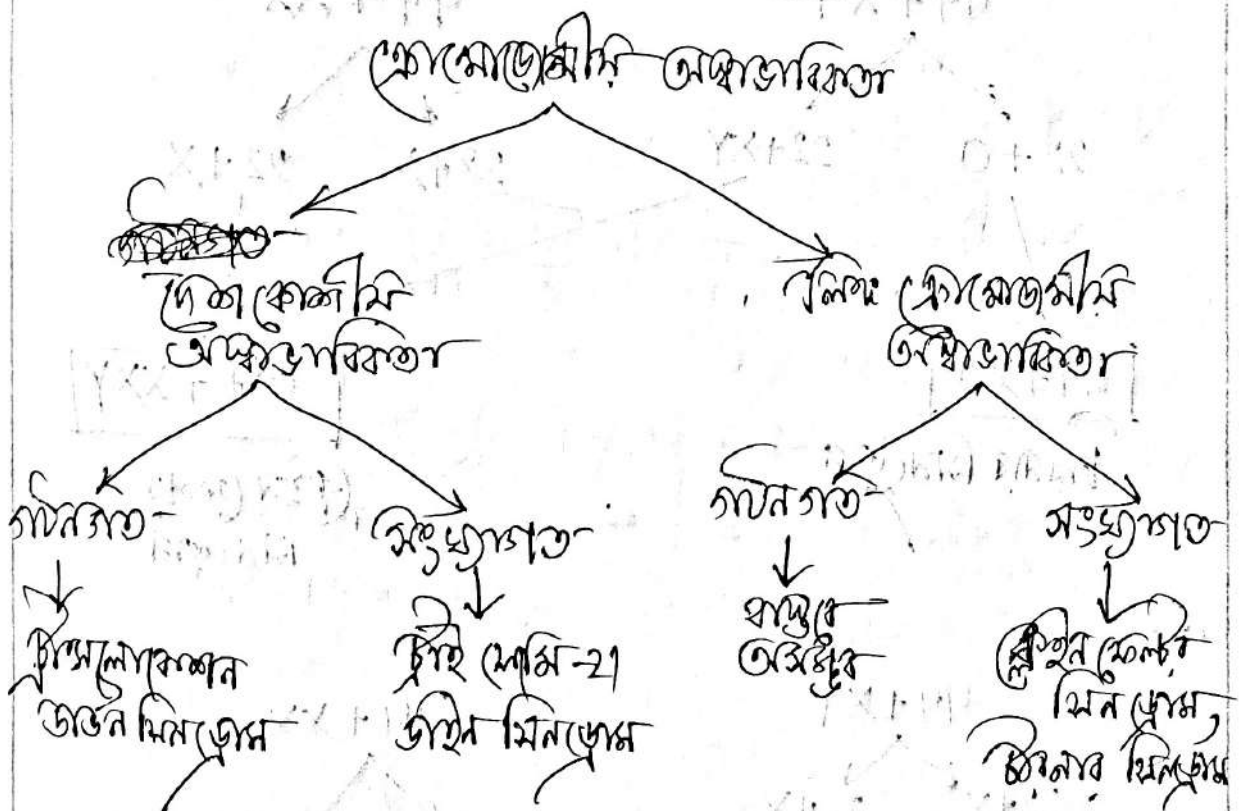 ক্রোমোজোমীয় অস্বাভাবিকতা
দেশ কোশীয়
অস্বাভাবিকতা
লিঙ্গ ক্রোমোজমীয়
অস্বাভাবিকতা
গঠনগত
সংখ্যাগত
গঠনগত
সংখ্যাগত
ট্রান্সলোকেশান
ডাউন সিনড্রোম
ট্রাই সোমি-21
ডাইন সিনড্রোম
বাস্তবে
অসম্ভব
ক্লাইন ফেল্টর
সিনড্রোম,
টারনার সিনড্রোম